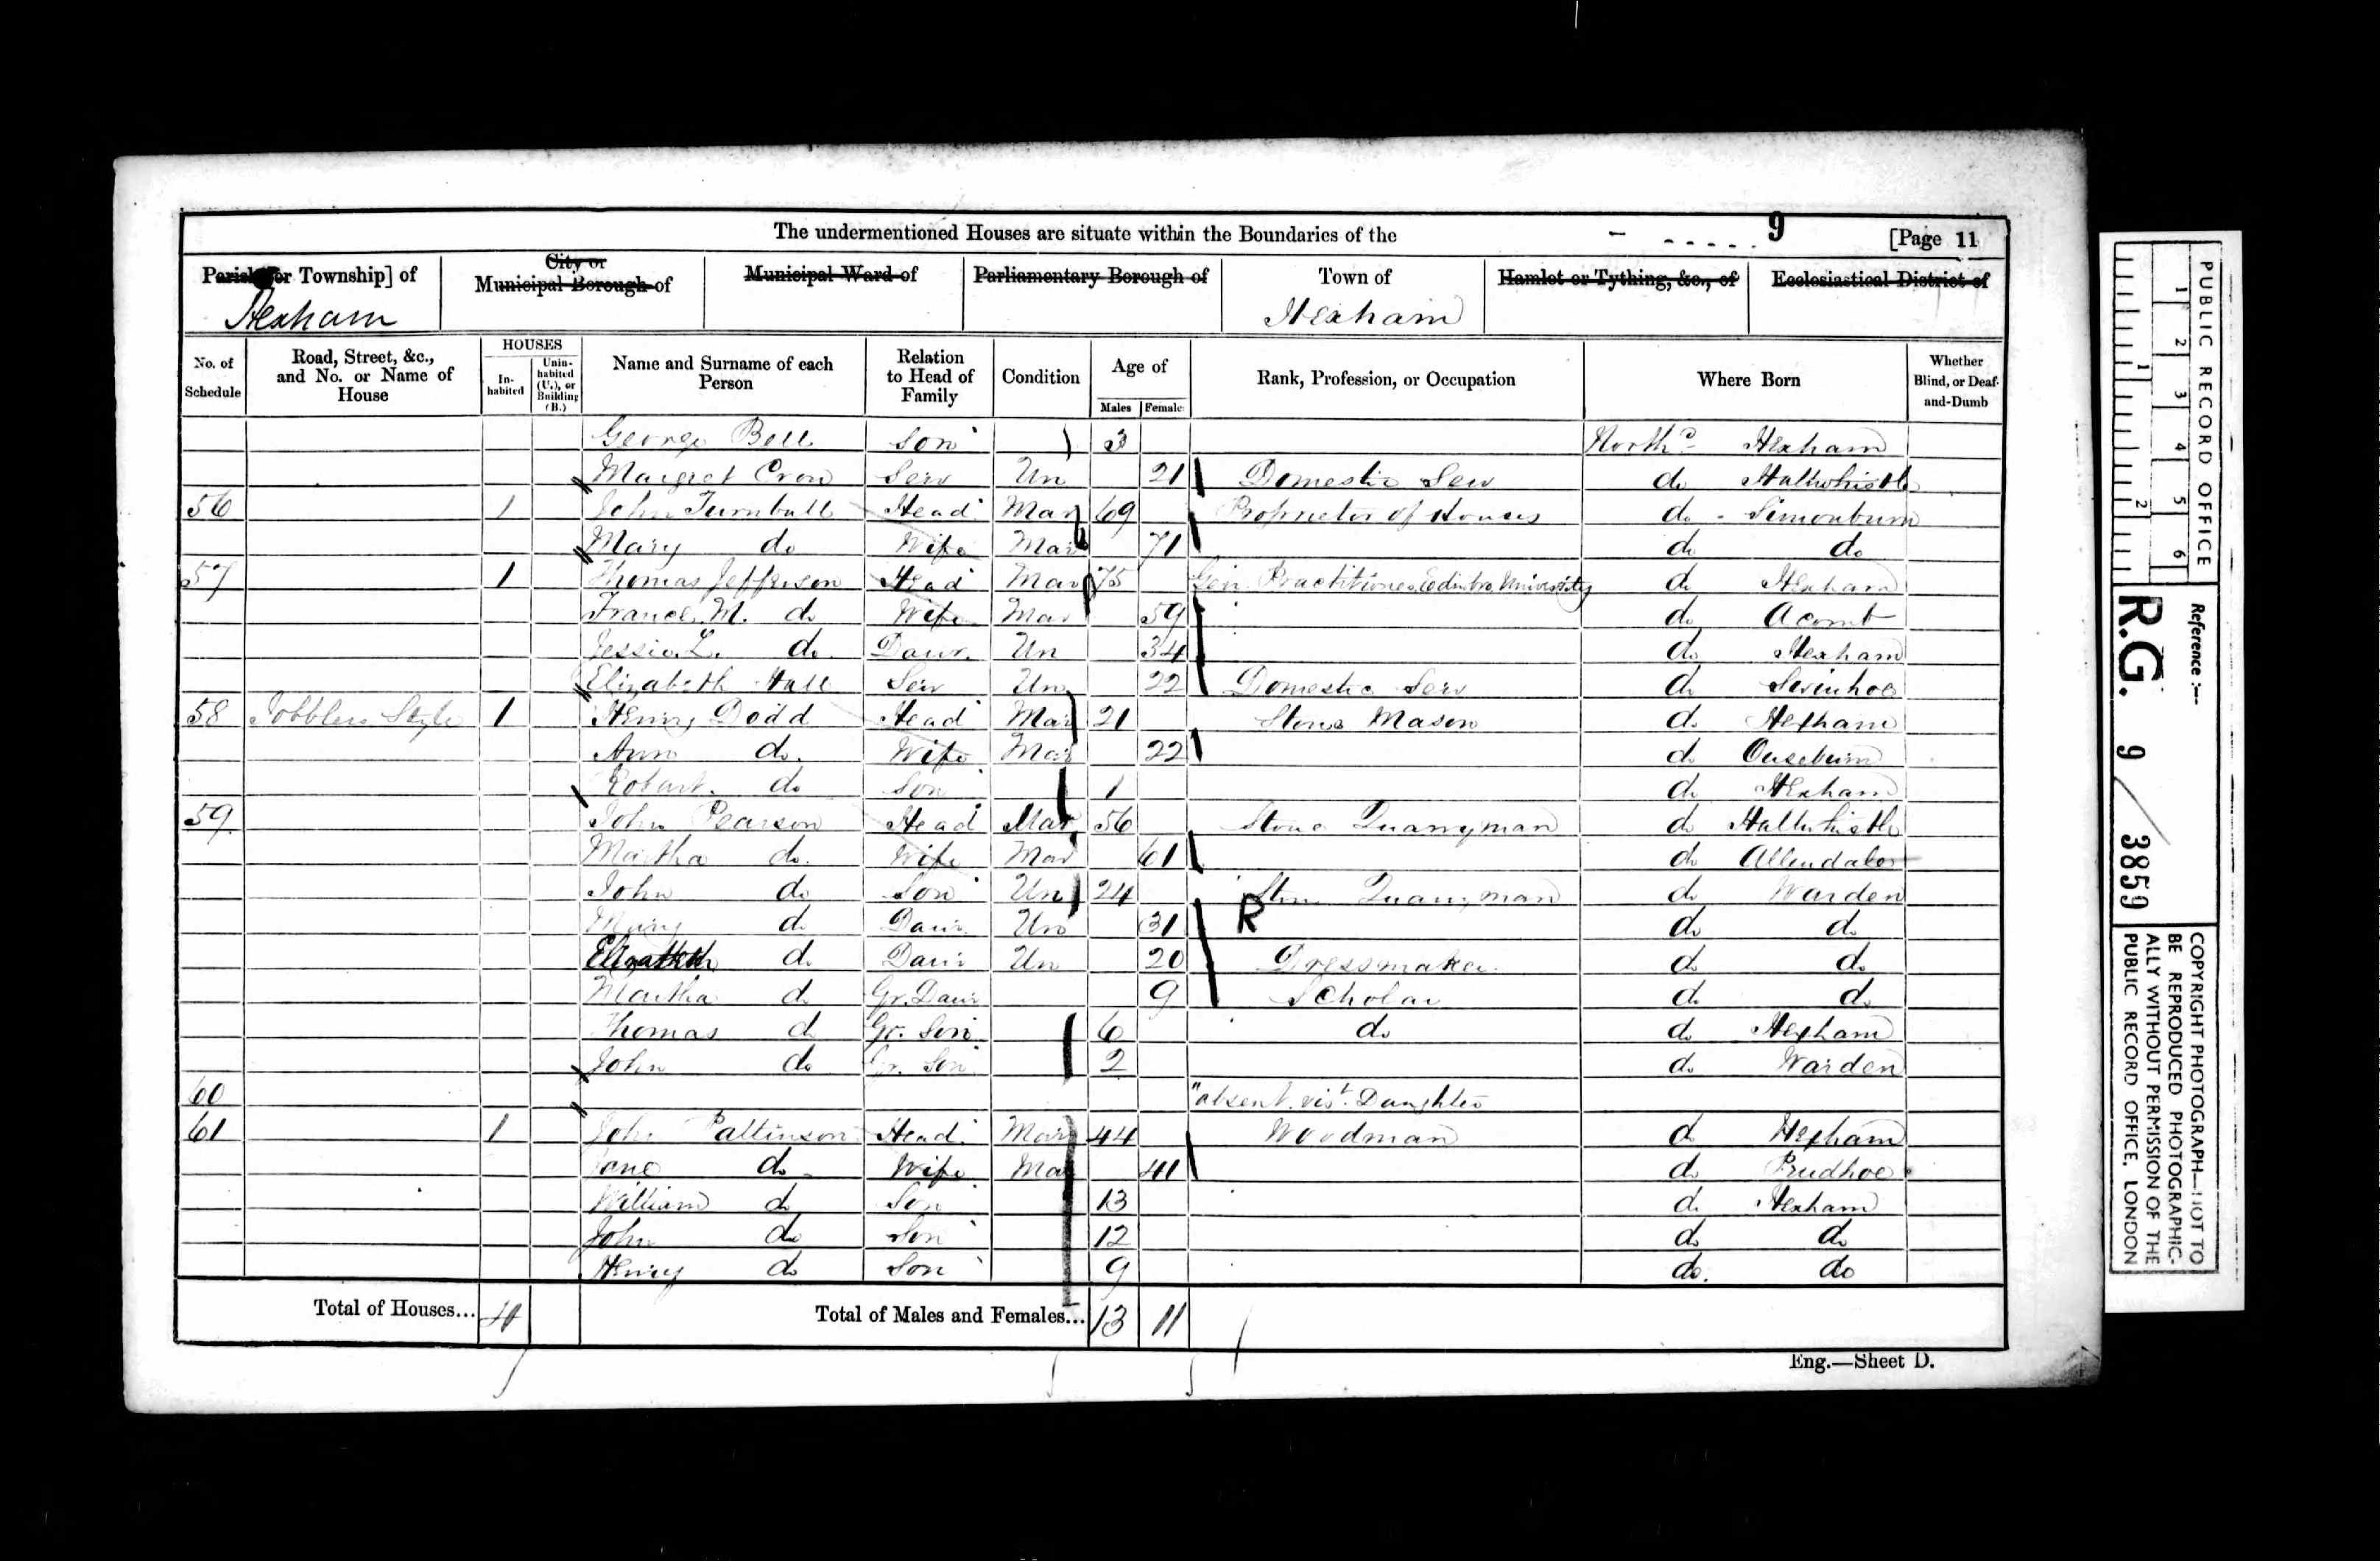 The undermentioned Houses are situate within the Boundaries of the 9 [Page 11
Parish [or Township] of City or Municipal Borough of Municipal Ward of Parliamentary Borough of Town of Hamlet or Tything, &c., of Ecclesiastical District of
Hexham Hexham
No. of Schedule Road, Street, &c., and No. or Name of House HOUSES Inhabited Uninhabited (U.), or Building (B.) Name and Surname of each Person Relation to Head of Family Condition Age of Males Females Rank, Profession, or Occupation Where Born Whether Blind, or Deaf-and-Dumb
George Bell Son 3 Northd Hexham
Margret Crow Serv Un 21 Domestic Serv do Haltwhistle
56 1 John Turnbull Head Mar 69 Proprietor of Houses do Simonburn
Mary do Wife Mar 71 do do
57 1 Thomas Jefferson Head Mar 75 Gen Practitioner Edinbro University do Hexham
France. M. do Wife Mar 59 do Acomb
Jessie L. do Daur. Un 34 do Hexham
Elizabeth Hall Serv Un 22 Domestic Serv do
58 1 Henry Dodd Head Mar 21 Stone Mason do Hexham
Ann do. Wife Mar 22 do Ouseburn
Robart. do Son 1 do Hexham
59 John Pearson Head Mar 56 Stone Quarryman do Haltwhistle
Martha do. Wife Mar 61 do Allendale
John do Son Un 24 Stone Quarryman do Warden
Mary do Daur Un 31 R do do
Elizabeth do Daur Un 20 Dressmaker do do
Martha do Gr. Daur 9 Scholar do do
Thomas do Gr. Son 6 do do Hexham
John do Gr. Son 2 do Warden
60 "absent. vist. Daughter
61 1 John Pattinson Head Mar 44 Woodman do Hexham
Jane do Wife Mar 41 do Prudhoe
William do Son 13 do Hexham
John do Son 12 do do
Henry do Son 9 do. do
Total of Houses... 4 Total of Males and Females... 13 11
Eng.—Sheet D.
PUBLIC RECORD OFFICE
1 2 3 4 5 6
1 2
Reference :—
R.G. 9 / 3859
COPYRIGHT PHOTOGRAPH—NOT TO
BE REPRODUCED PHOTOGRAPHIC-
ALLY WITHOUT PERMISSION OF THE
PUBLIC RECORD OFFICE, LONDON